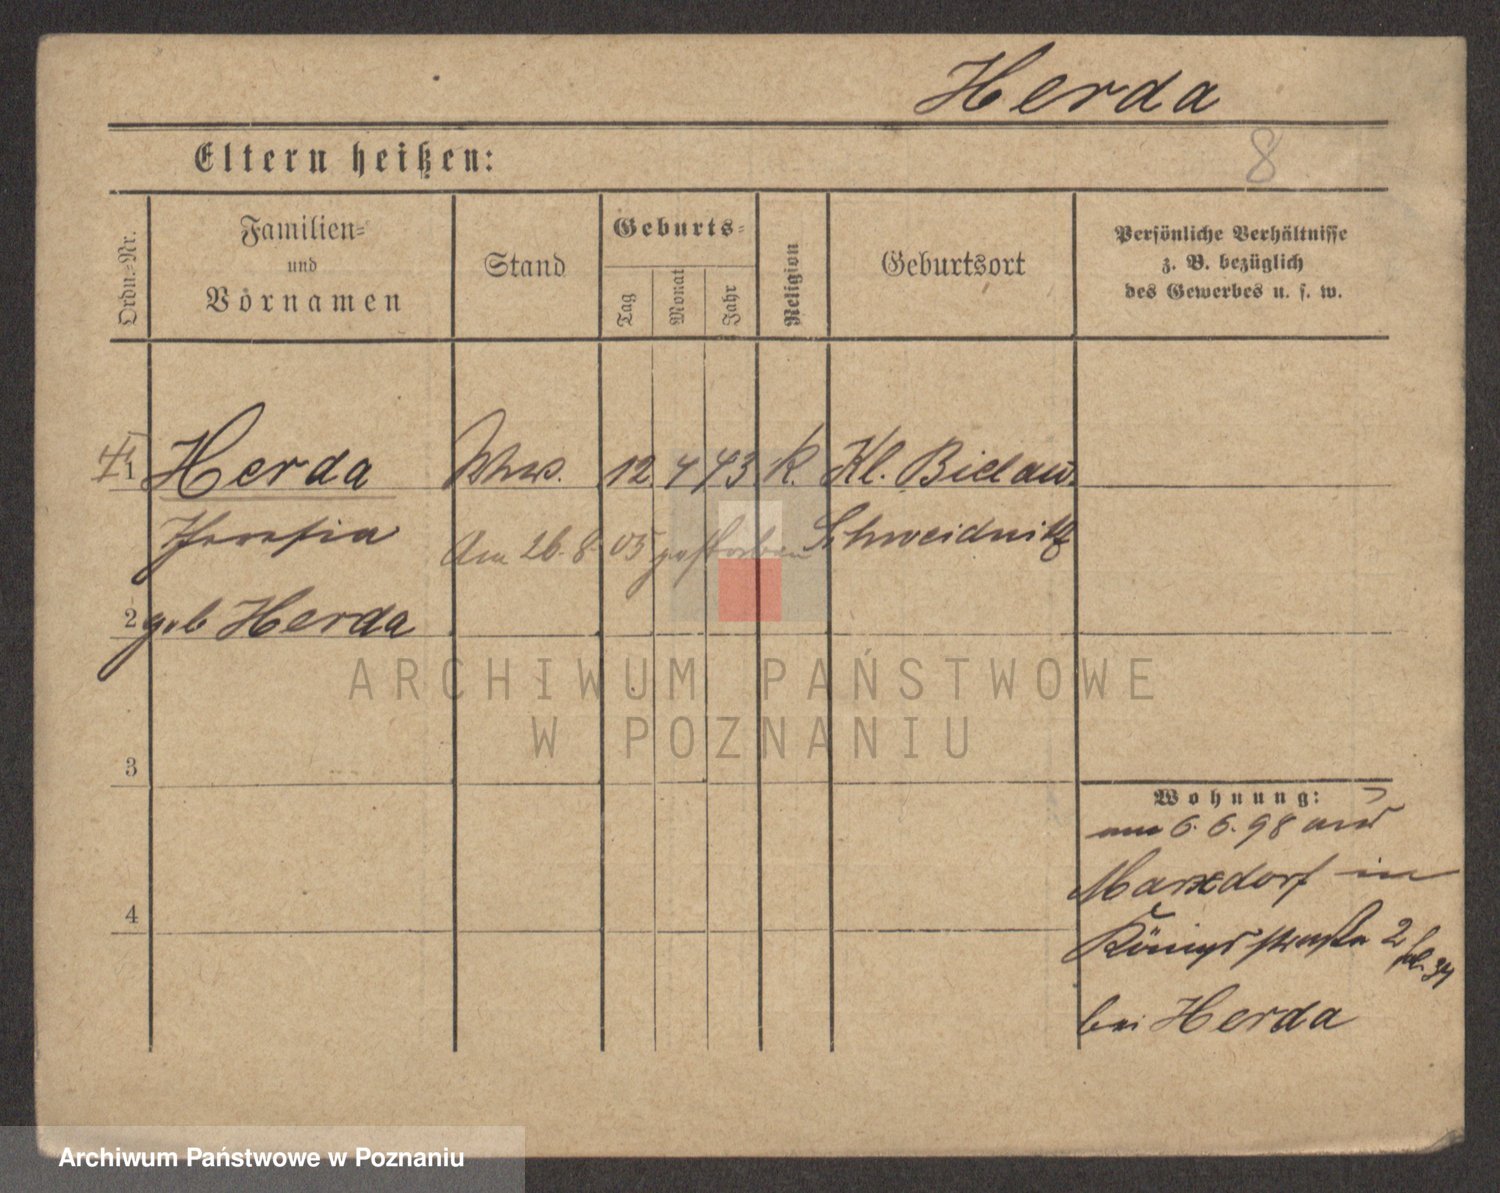 Herda
8
Eltern heißen:
Ordn.-Nr.
Familien-
und
Vornamen
Stand
Geburts-
Tag
Monat
Jahr
Religion
Geburtsort
Persönliche Verhältnisse
z. B. bezüglich
des Gewerbes u. s. w.
1 Herda Wwe. 12 4 43 k. Kl. Bielau
Theresia Schweidnitz
Am 26. 8. 05 gestorben
2 geb Herda
ARCHIWUM PAŃSTWOWE
W POZNANIU
3
Wohnung:
am 6. 6. 98 aus
Marxdorf in
4
Königsstraße 2
bei Herda
Archiwum Państwowe w Poznaniu